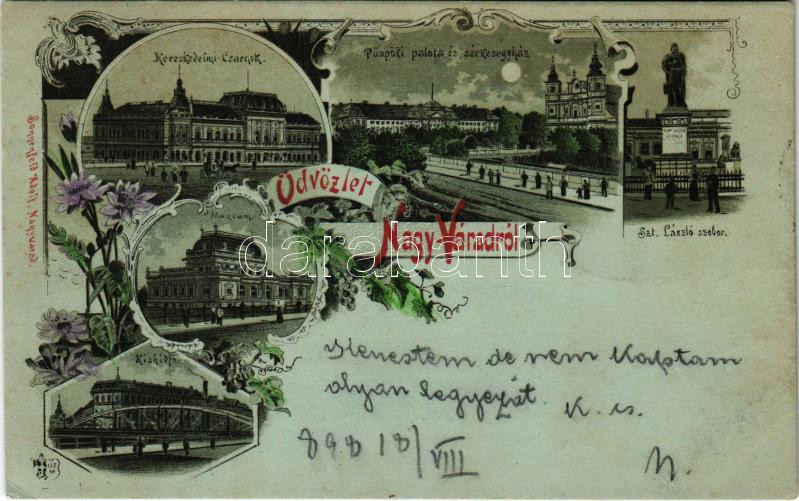 Kereskedelmi-Csarnok.
Püspöki palota és székesegyház
Szt. László szobor.
Üdvözlet
Nagy-Váradról
Múzeum
Kishídfő
Sonnenfeld Adolf, Nagyvárad.
darabanth
Kerestem de nem kaptam
olyan
K. cs.
898 18/VIII
N.